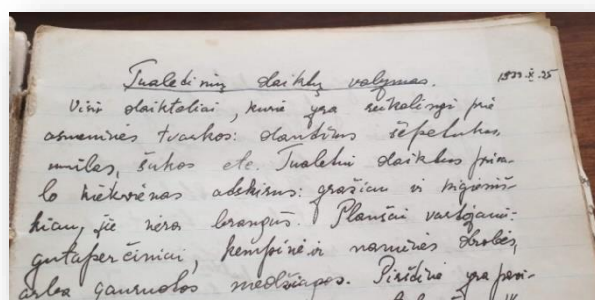 Tualetinių daiktų valymas. 1933.X.25
Visi daikteliai, kurie yra reikalingi prie
asmeninės tvarkos: dantims šepetukas,
muilas, šukos etc. Tualetui daiktus priva-
lo kiekvienas atskirus: gražiau ir higieniš-
kiau, jie nėra brangūs. Plaušai vartojami:
gutaperčiniai, kempinė ir naminės drobės,
arba gauruotos medžiagos. yra pavi-